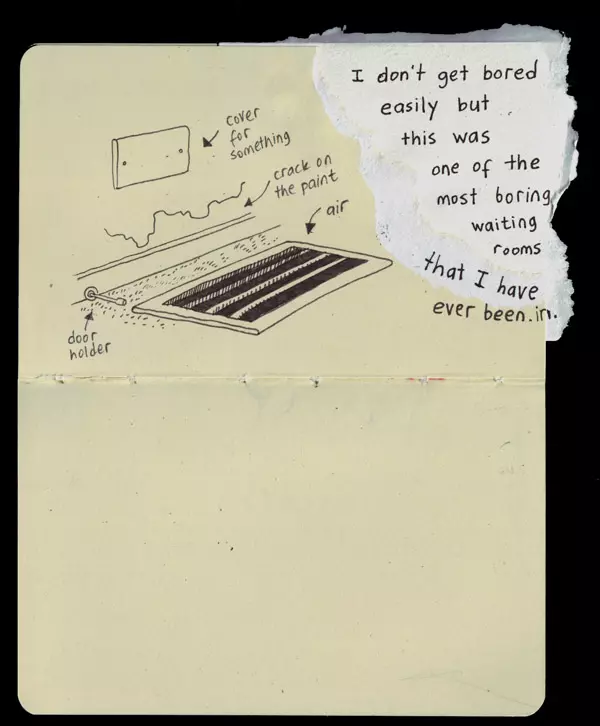 I don't get bored
easily but
this was
one of the
most boring
waiting
rooms
that I have
ever been.in.
cover
for
something
crack on
the paint
air
door
holder